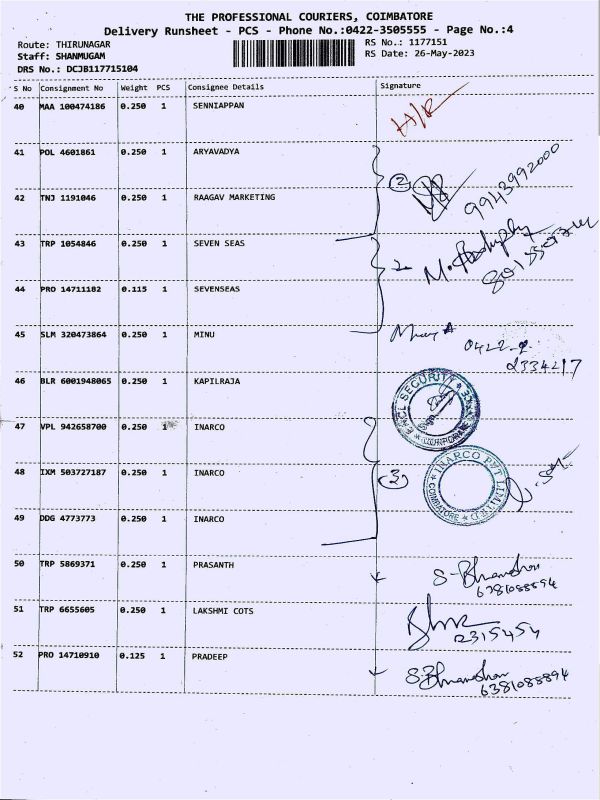 THE PROFESSIONAL COURIERS, COIMBATORE
Delivery Runsheet - PCS - Phone No.:0422-3505555 - Page No.:4
Route: THIRUNAGAR
RS No.: 1177151
Staff: SHANMUGAM
RS Date: 26-May-2023
DRS No.: DCJB117715104
S No Consignment No Weight PCS Consignee Details Signature
40 MAA 100474186 0.250 1 SENNIAPPAN
41 POL 4601861 0.250 1 ARYAVADYA
2
9943992000
42 TNJ 1191046 0.250 1 RAAGAV MARKETING
43 TRP 1054846 0.250 1 SEVEN SEAS
2
44 PRO 14711182 0.115 1 SEVENSEAS
45 SLM 320473864 0.250 1 MINU
0422-2
2334217
46 BLR 6001948065 0.250 1 KAPILRAJA
SECURITY
CORPORATE
47 VPL 942658700 0.250 1 INARCO
48 IXM 503727187 0.250 1 INARCO
3
INARCO PVT LIMITED
COIMBATORE
49 DDG 4773773 0.250 1 INARCO
50 TRP 5869371 0.250 1 PRASANTH
6381088894
51 TRP 6655605 0.250 1 LAKSHMI COTS
2315454
52 PRO 14710910 0.125 1 PRADEEP
6381088894